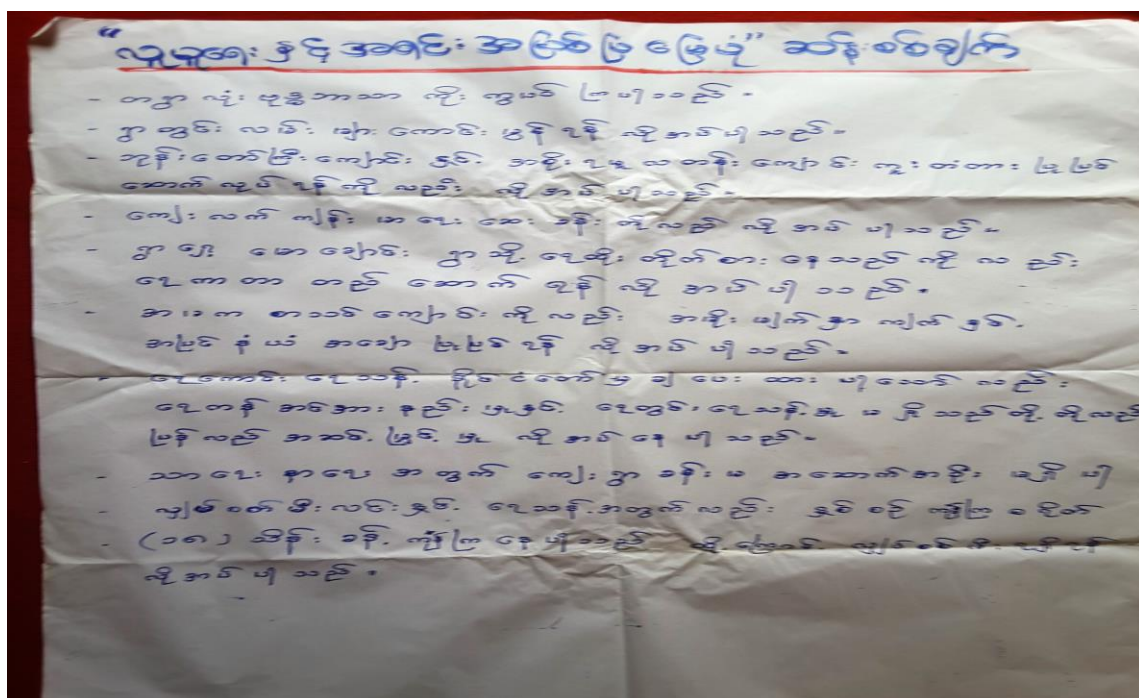 "လူမှုရေး နှင့် အရင်းအမြစ်ပြမြေပုံ" ဆန်းစစ်ချက်
- တရွာလုံး ဗုဒ္ဓဘာသာ ကိုးကွယ်ကြပါသည်။
- ရွာတွင်း လမ်းများ ကောင်းမွန်ရန် လိုအပ်ပါသည်။
- ဘုန်းတော်ကြီးကျောင်းနှင့် အစိုးရမူလတန်းကျောင်း ကူးတံတား ပြုပြင်
ဆောက်လုပ်ရန်ကိုလည်း လိုအပ်ပါသည်။
- ကျေးလက်ကျန်းမာရေးဆေးခန်းတို့လည်း လိုအပ်ပါသည်။
- ရွာရှေ့ ချောင်း ရွာသို့ ရေထိုးတိုက်စားနေသည်ကိုလည်း
ရေကာတာ တည်ဆောက်ရန် လိုအပ်ပါသည်။
- အ.မ.က စာသင်ကျောင်းကိုလည်း အမိုးမျက်နှာကျက်နှင့်
အပြင်နံရံ အချော ပြုပြင်ရန် လိုအပ်ပါသည်။
- ရေကောင်းရေသန့် နိုင်ငံတော်မှ ချပေးထားပါသော်လည်း
ရေတန် အင်အားနည်းမှုနှင့် ရေတွင်းရေသန့်မှု မရှိသည်တို့ကိုလည်း
ပြန်လည်အဆင့်မြှင့်မှု လိုအပ်နေပါသည်။
- သာရေးနာရေးအတွက် ကျေးရွာခန်းမ အဆောက်အဦး မရှိပါ
- လျှပ်စစ်မီးလင်းနှင့် ရေသန့်အတွက်လည်း နှစ်စဉ် ကျပ်ငွေ
- (၁၈) သိန်းခန့် နေပါသည် လျှပ်စစ်မီး
လိုအပ်ပါသည်။